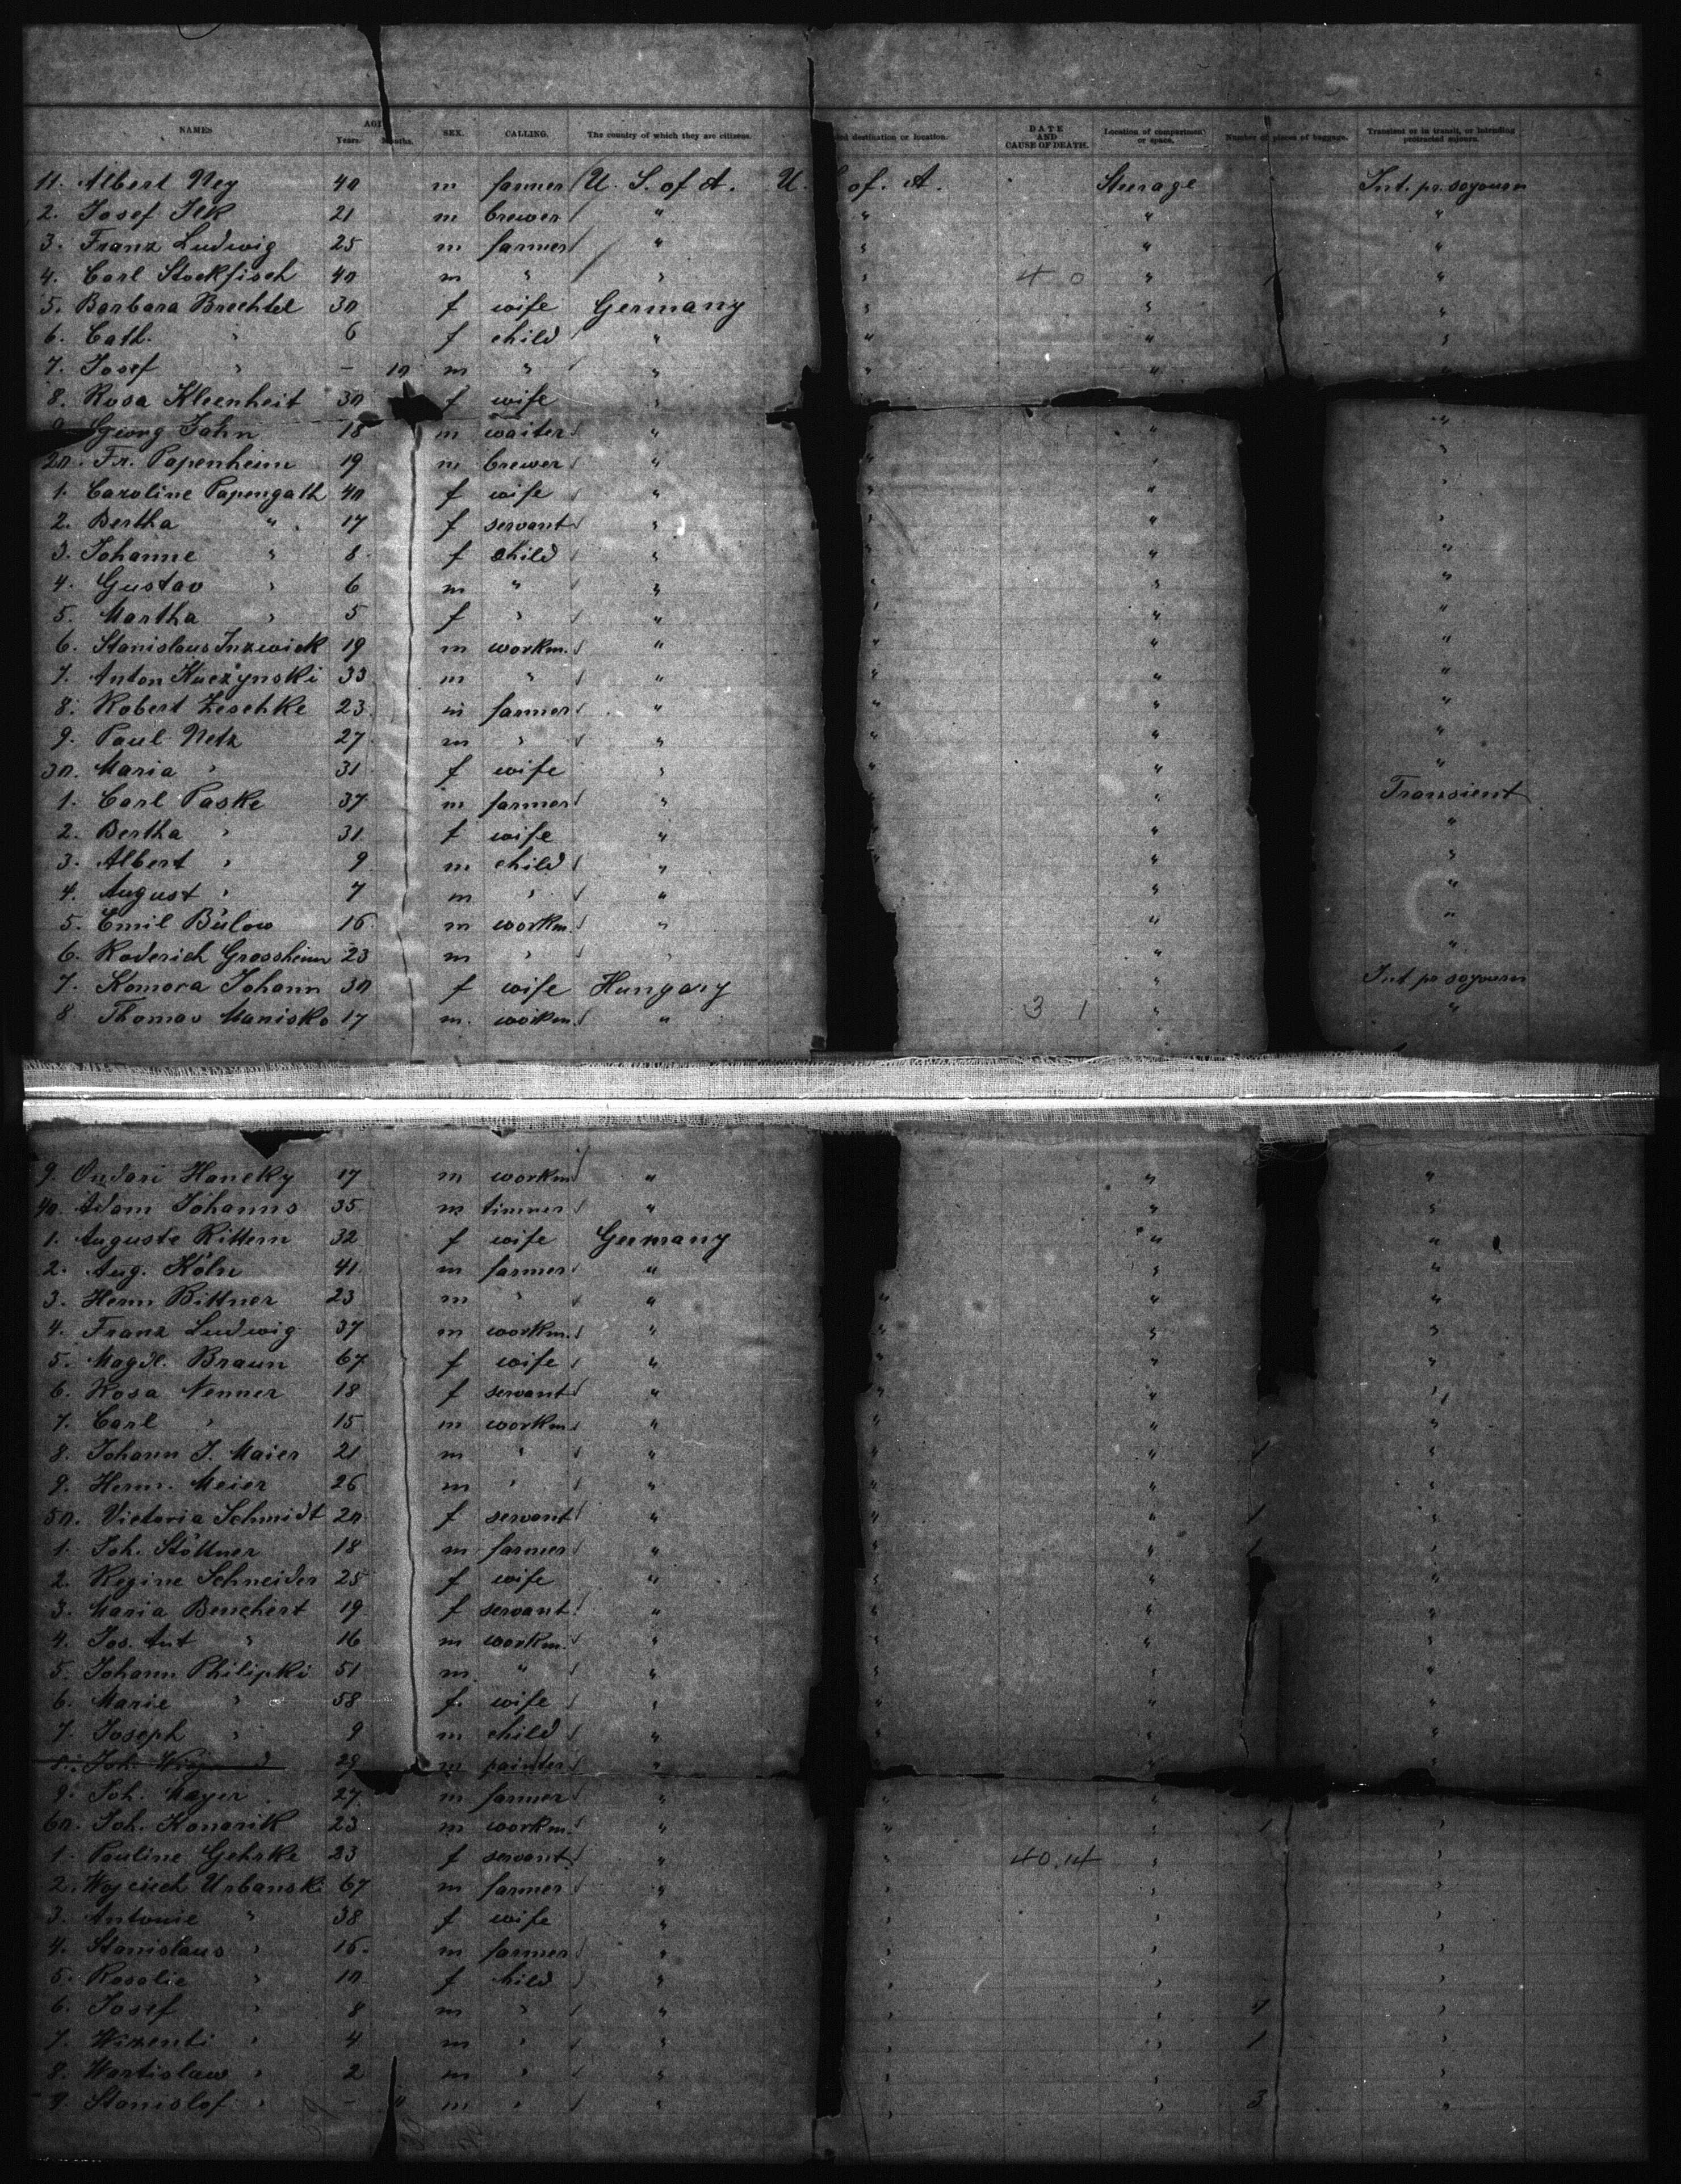 NAMES AGE Years. Months. SEX. CALLING. The country of which they are citizens. destination or location. DATE AND CAUSE OF DEATH. Location of compartment or space. Number of pieces of baggage. Transient or in transit, or intending protracted sojourn.
11. Albert Ney 40 m farmer U. S. of A. U. of. A. Steerage Int. pr. sojourn
2. Josef Ilk 21 m brewer " " " "
3. Franz Ludwig 25 m farmer " " " "
4. Carl Stockfisch 40 m " " " 4 0 " 1 "
5. Barbara Brechtel 30 f wife Germany " " "
6. Cath. " 6 f child " " " "
7. Josef " - 10 m " " " " "
8. Rosa Kleenheit 30 f wife "
9. Georg Jahn 18 m waiter " " "
20. Fr. Papenheim 19 m brewer " " " "
1. Caroline Papengath 40 f wife " " " "
2. Bertha " 17 f servant " " " "
3. Johanne " 8 f child " " " "
4. Gustav " 6 m " " " " "
5. Martha " 5 f " " " " "
6. Stanislaus Inzwick 19 m workm. " " " "
7. Anton Kuczynski 33 m " " " " "
8. Robert Zeschke 23 m farmer " " " "
9. Paul Netz 27 m " " " " "
30. Maria " 31 f wife " " " "
1. Carl Paske 37 m farmer " " Transient
2. Bertha " 31 f wife " " "
3. Albert " 9 m child " " "
4. August " 7 m " " " "
5. Emil Bülow 16 m workm. " " "
6. Roderich Grossheim 23 m " " " "
7. Komora Johann 30 f wife Hungary " Int pr sojourn
8 Thomas Manisko 17 m. workm. " 3 1 " "
9. Ondari Haneky 17 m workm " " "
40. Adam Johanns 35 m tinner " " "
1. Auguste Rittern 32 f wife Germany " "
2. Aug. Köln 41 m farmer " " "
3. Herm Bittner 23 m " " " " "
4. Franz Ludwig 37 m workm. " " " "
5. Magdl. Braun 67 f wife " " " "
6. Rosa Nenner 18 f servant " " " "
7. Carl " 15 m workm. " " " "
8. Johann J. Maier 21 m " " " " 1 "
9. Herm. Meier 26 m " " " " "
50. Victoria Schmidt 20 f servant " " " 1 "
1. Joh. Stöttner 18 m farmer " " " 1 "
2. Regine Schneider 25 f wife " " " "
3. Maria Benchert 19 f servant " " " "
4. Jos. Ant " 16 m workm. " " " "
5. Johann Philipki 51 m " " " " "
6. Marie " 58 f wife " " " "
7. Joseph " 9 m child " " " "
8. Joh. 29 m painter " " " "
9. Joh. Mayer 27 m farmer " " "
60. Joh. Konarik 23 m workm. " " " 1 "
1. Pauline Gehrke 23 f servant " " 40,14 " "
2. Wojciech Urbanski 67 m farmer " " " "
3. Antonie " 38 f wife " " " "
4. Stanislaus " 16 m farmer " " " "
5. Rosalie " 10 f hild " " " "
6. Josef " 8 m " " " " 4 "
7. Wizenti " 4 m " " " " 1 "
8. Wartislaw " 2 m " " " " "
9. Stanislaf " - " m " " " " 3 "